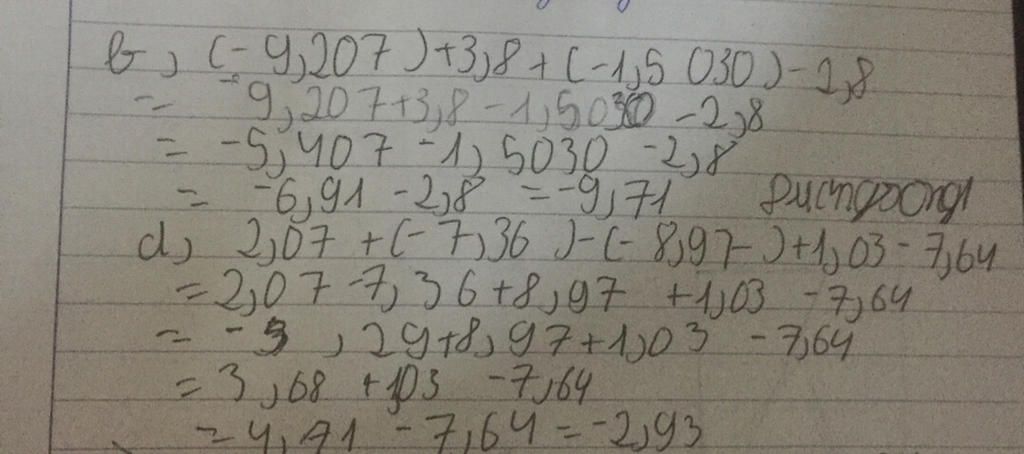 b, (-9,207)+3,8+(-1,5030)-2,8
= -9,207+3,8-1,5030 -2,8
= -5,407 -1,5030 -2,8
= -6,91 -2,8 = -9,71
d, 2,07 +(-7,36)-(-8,97)+1,03-7,64
=2,07-7,36+8,97 +1,03 -7,64
= -5,29+8,97+1,03 -7,64
=3,68 +1,03 -7,64
=4,71 -7,64=-2,93